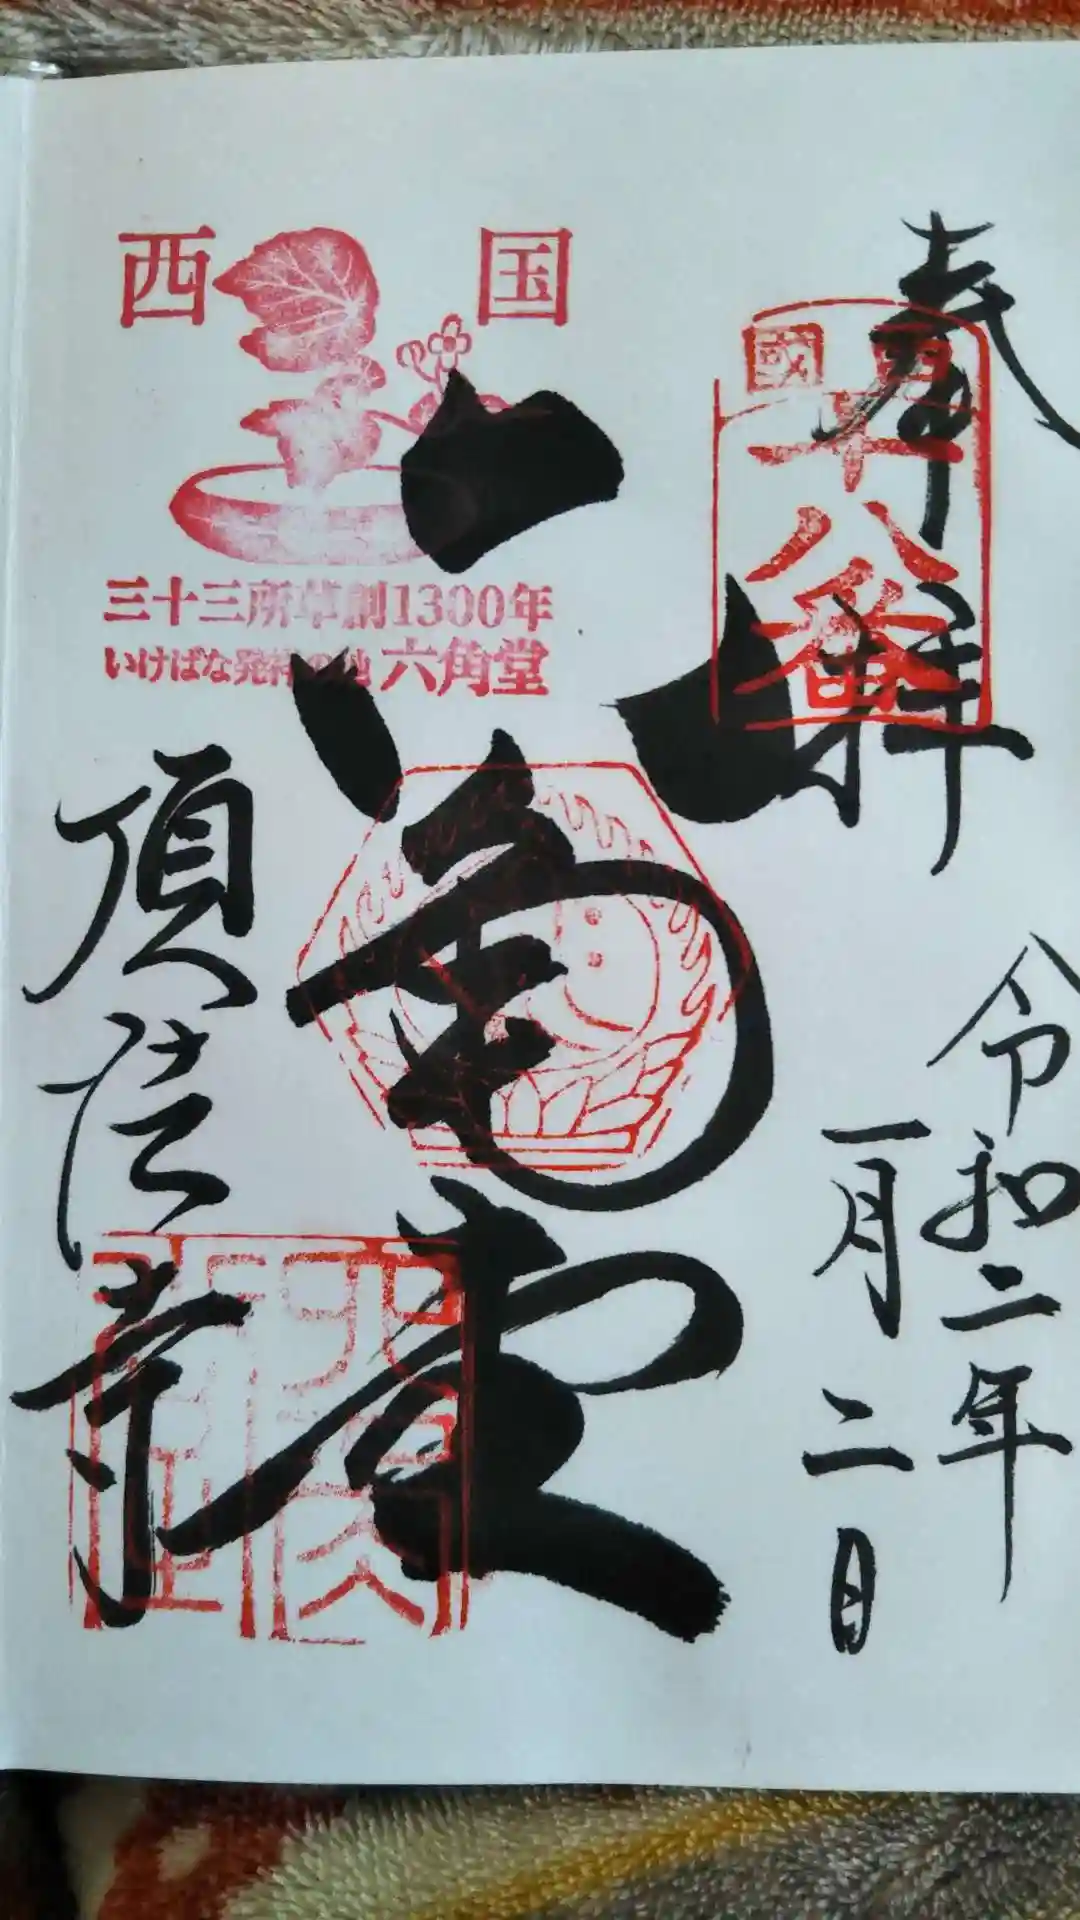 奉拝
西國
十八番
令和二年
一月二日
西国
三十三所草創1300年
いけばな発祥の地 六角堂
六角堂
頂法寺